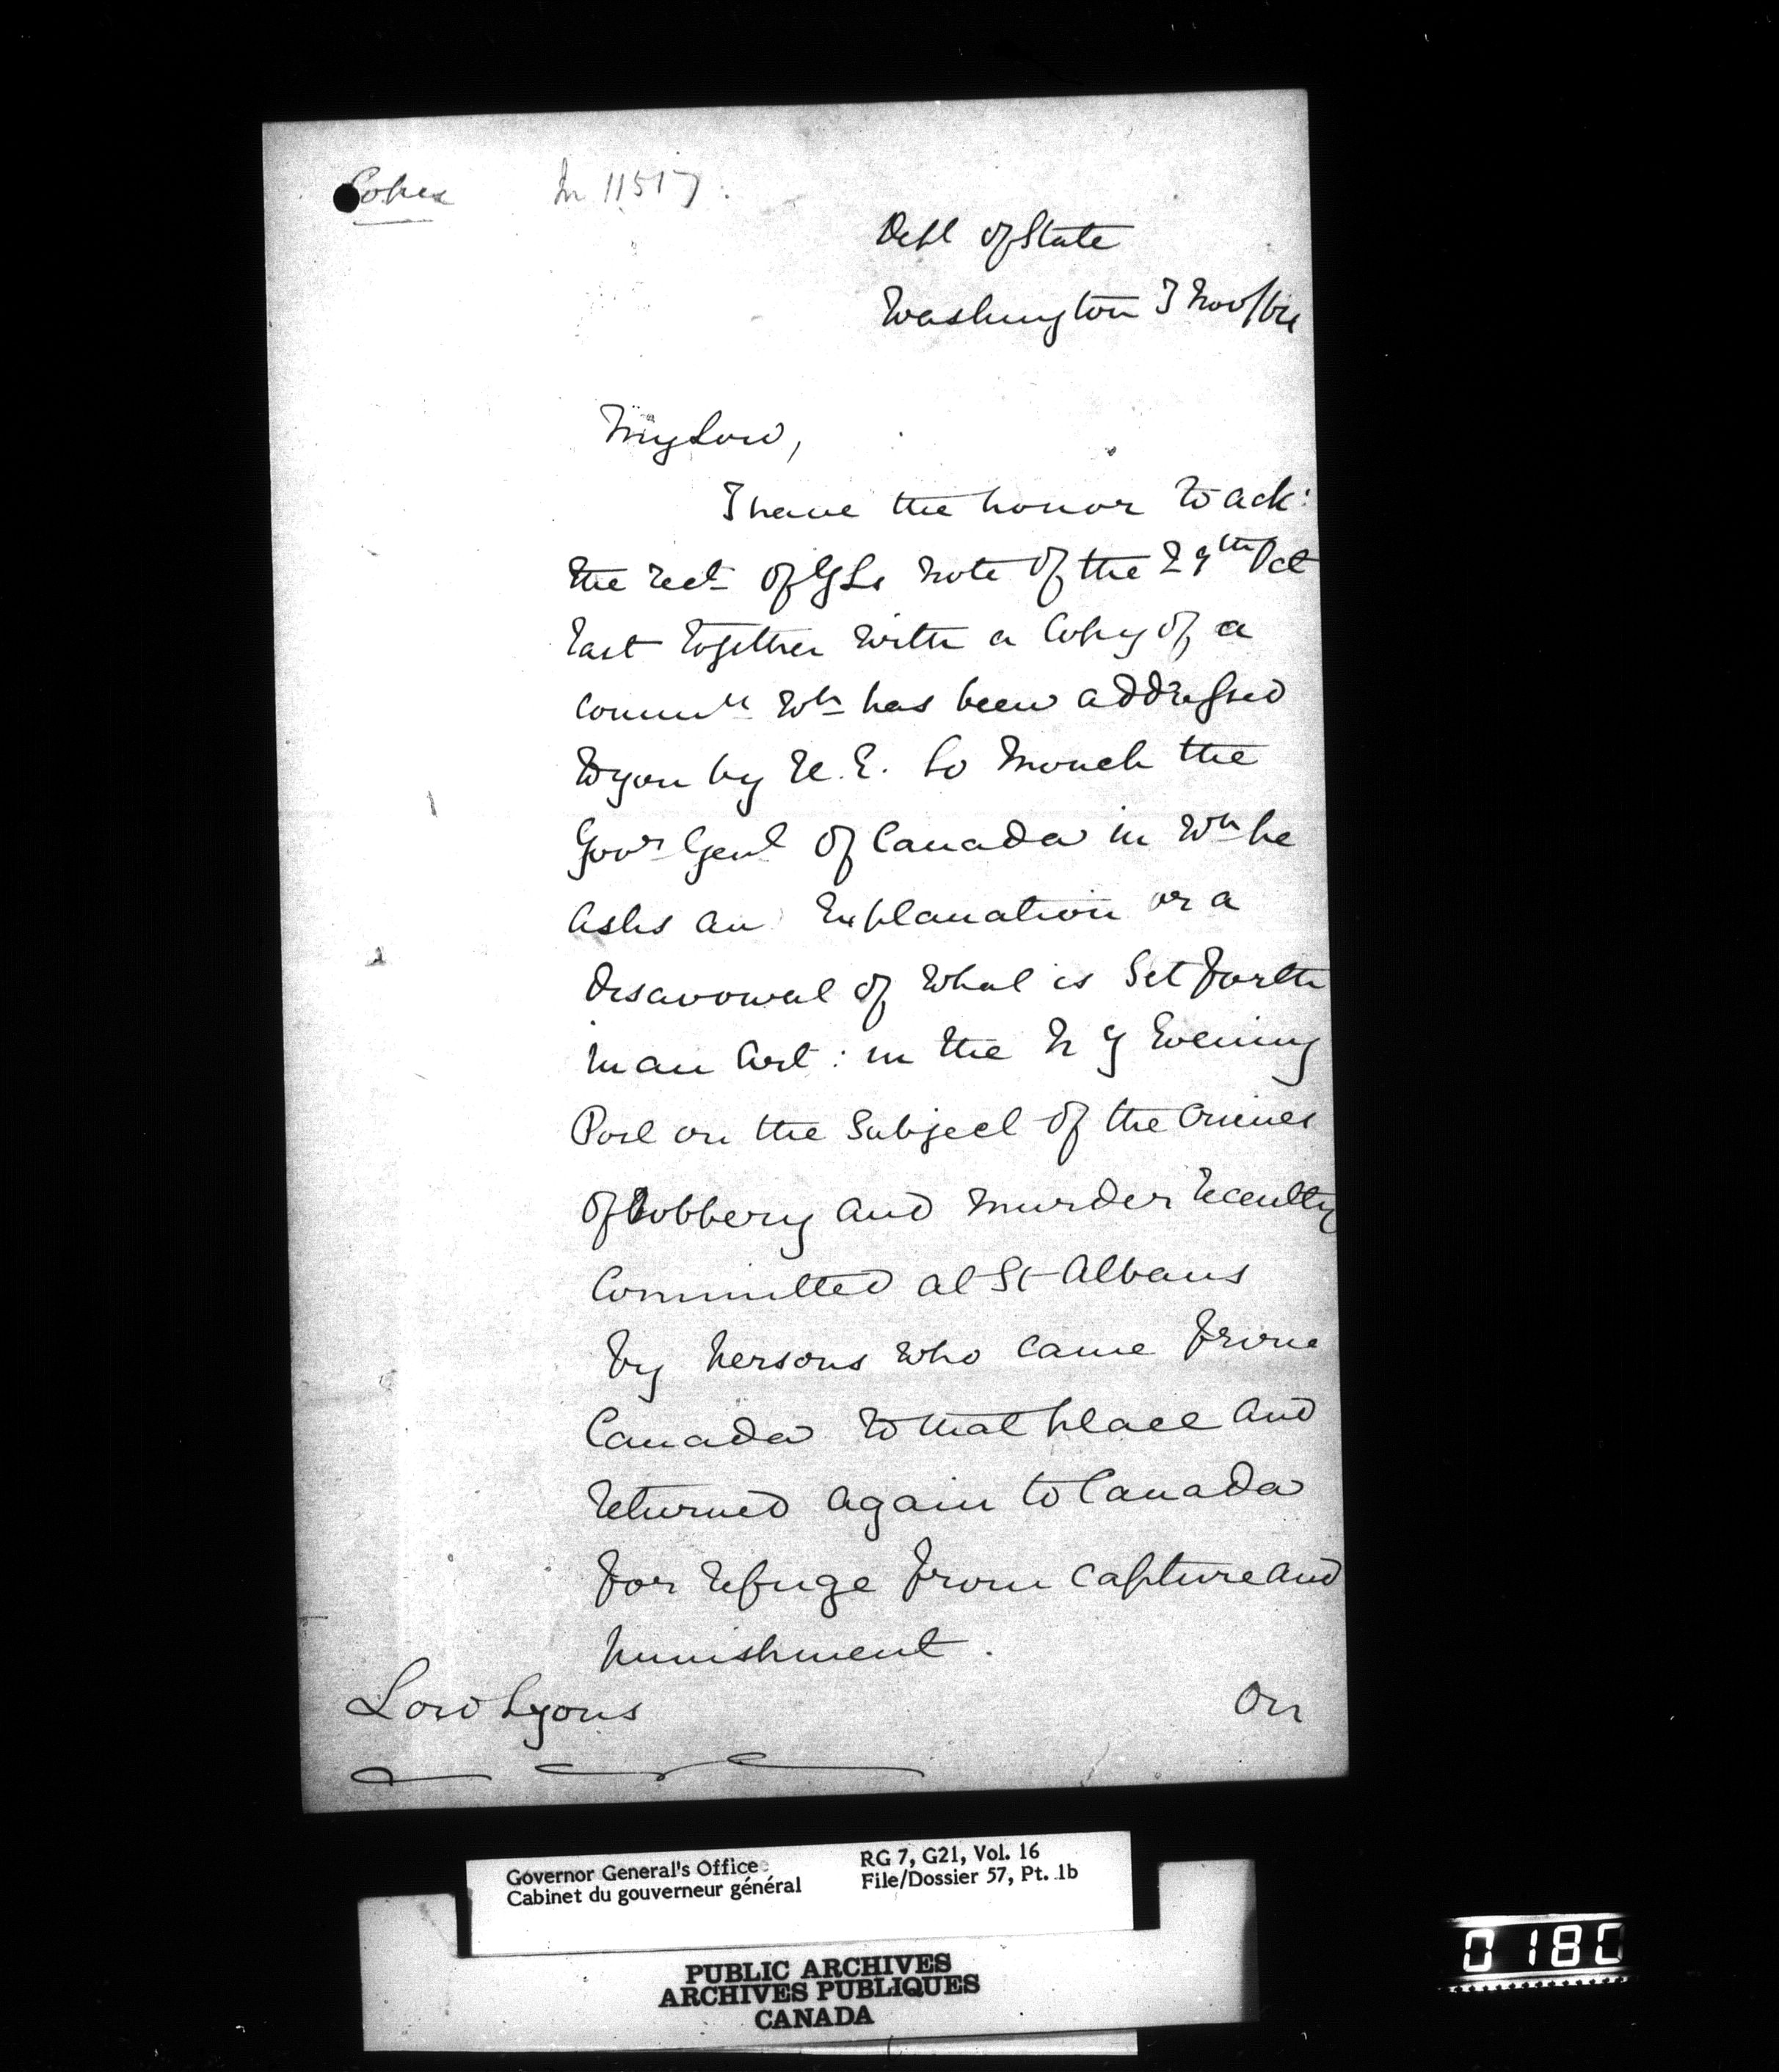 Copies In 11517.
Dept of State
Washington 3 Nov/64
My Lord,
I have the honor to ack:
the rect of YLs note of the 29th Oct
last together with a Copy of a
commn wh has been addressed
to you by H. E. Lo Monck the
Govr Genl of Canada in wh he
asks an Explanation or a
disavowal of what is Set forth
in an Art: in the N Y Evening
Post on the Subject of the Crimes
of Robbery and Murder recently
Committed at St Albans
by persons who came from
Canada to that place and
returned again to Canada
for refuge from capture and
punishment.
Lord Lyons On
Governor General's Office RG 7, G21, Vol. 16
Cabinet du gouverneur général File/Dossier 57, Pt. 1b
PUBLIC ARCHIVES
ARCHIVES PUBLIQUES
CANADA
0180